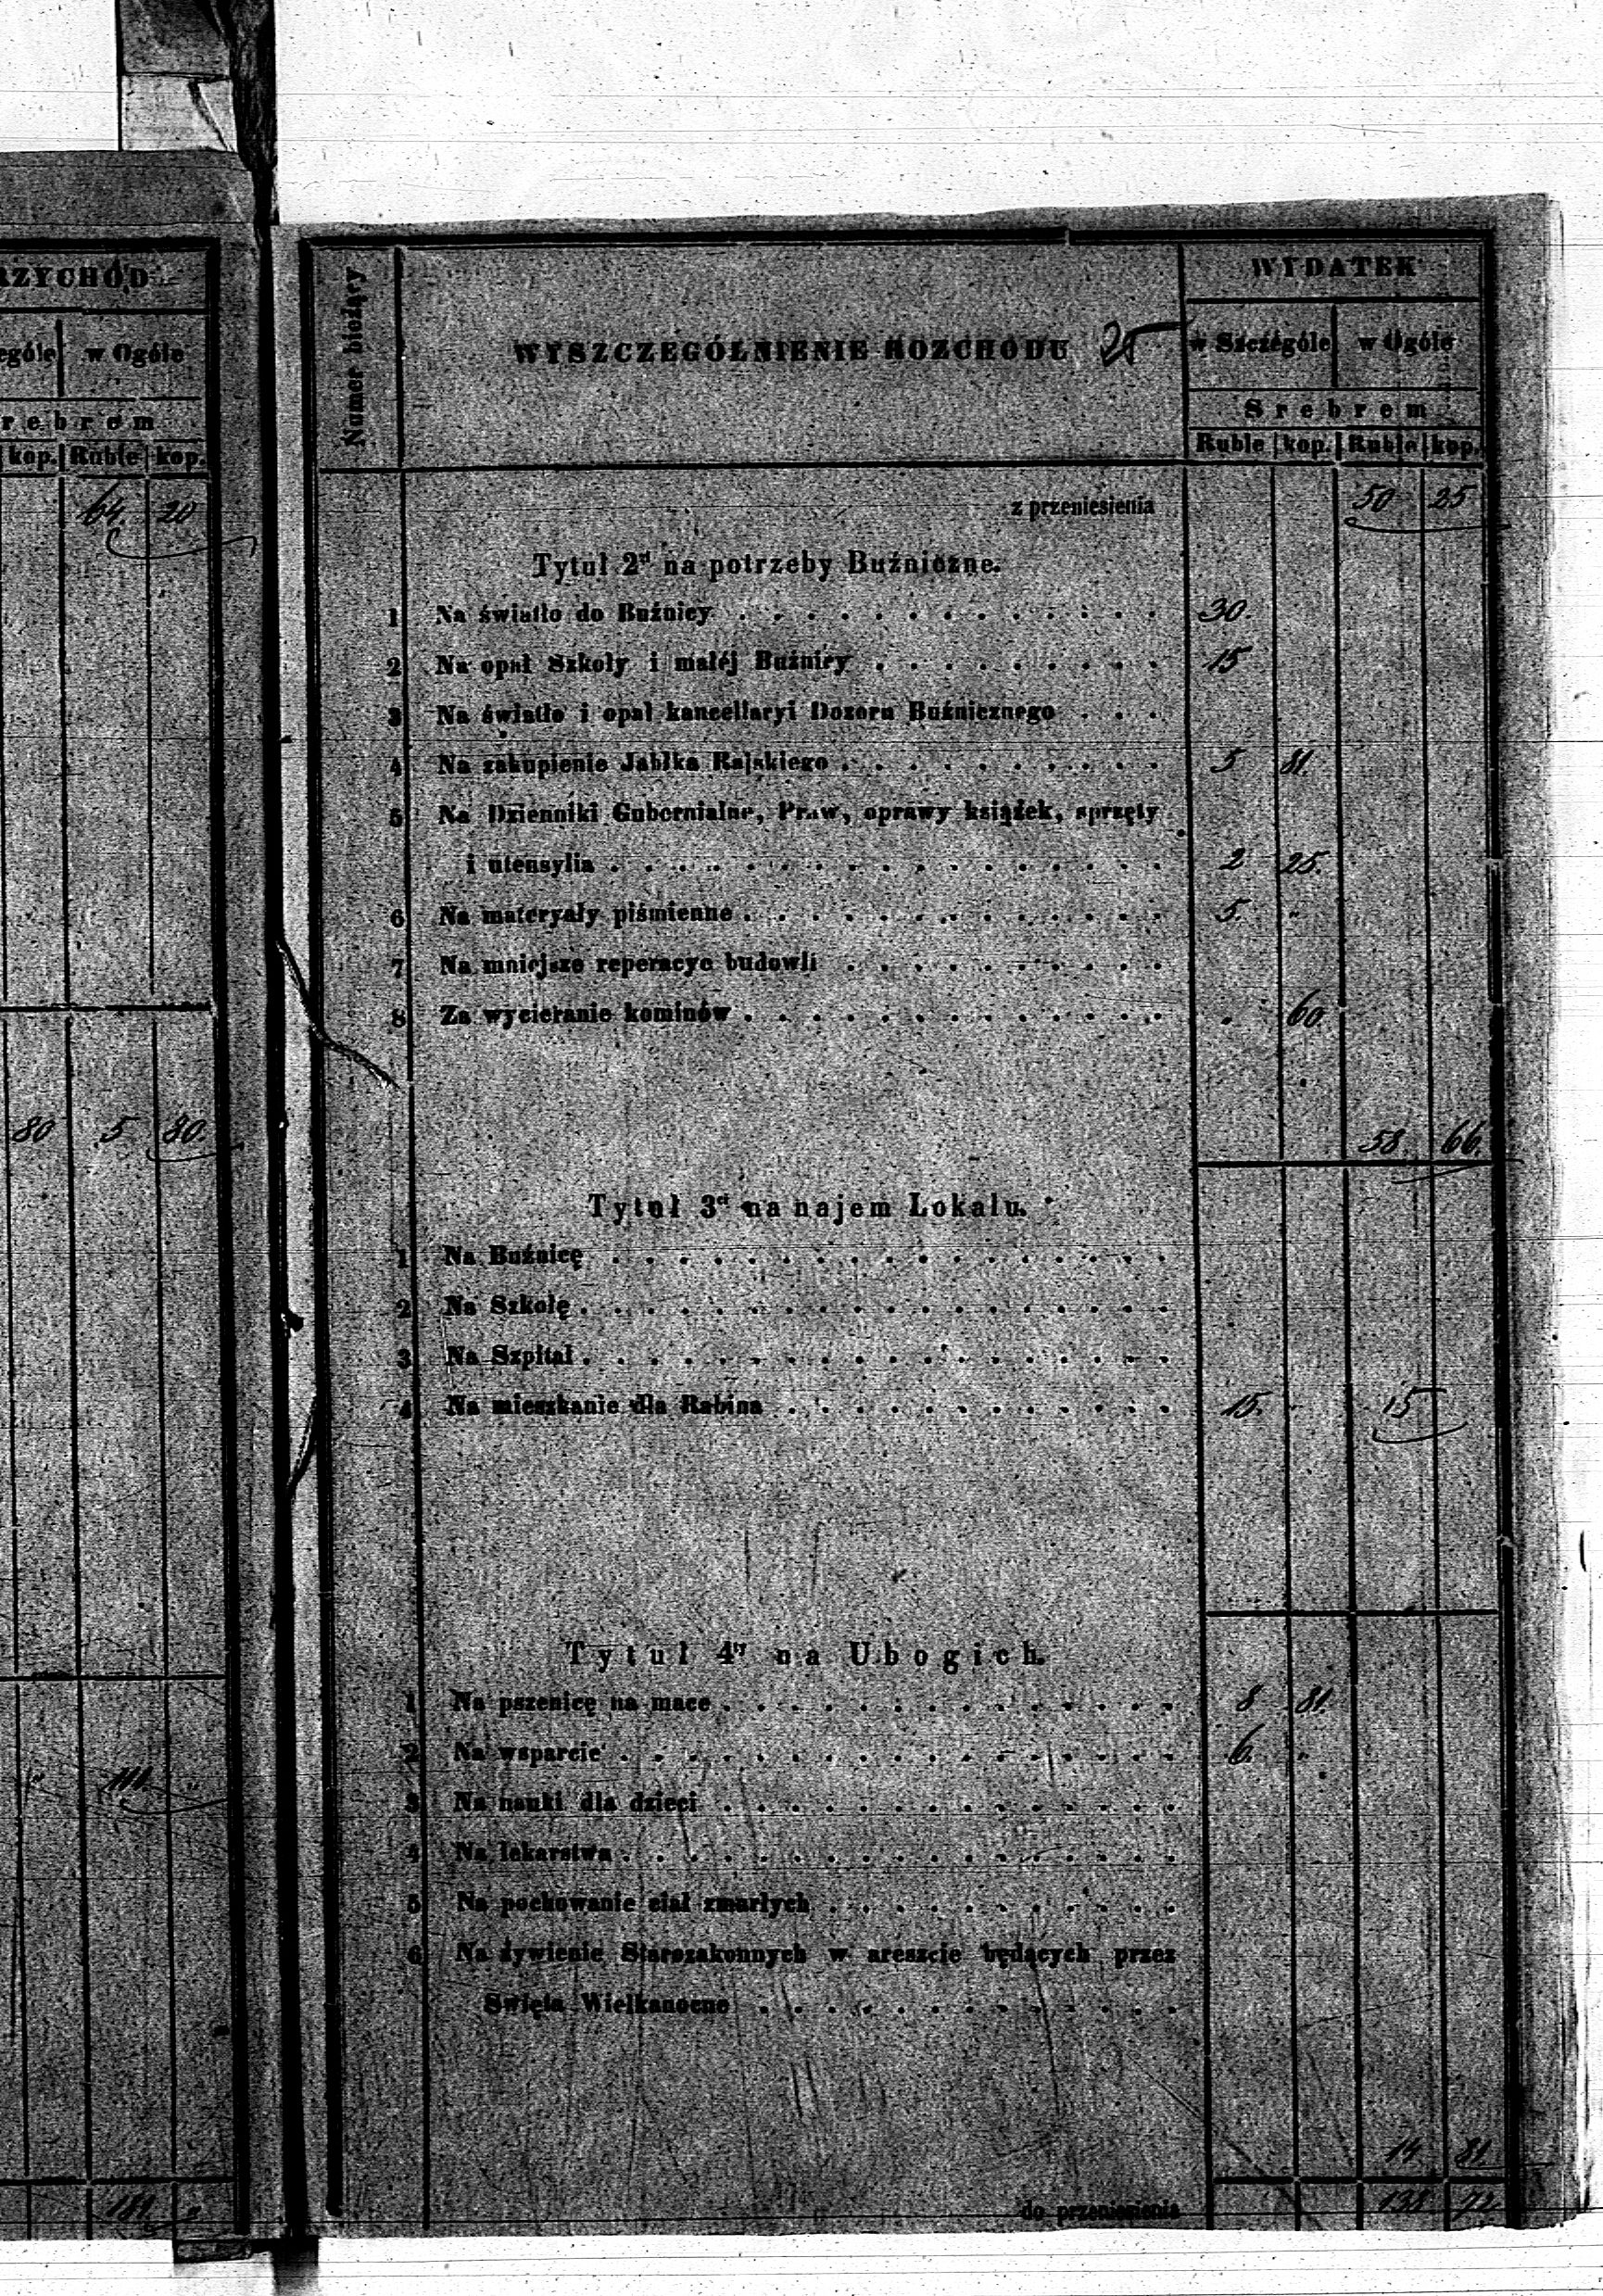 RZYCHÓD
ególe w Ogóle
rebrem
kop. Ruble kop.
64. 20
80 5 80.
" 111 "
181 "
Numer bieżący
WYSZCZEGÓLNIENIE ROZCHODU 25
WYDATEK
w Szczególe w Ogóle
Srebrem
Ruble kop. Ruble kop.
z przeniesienia 50 25
Tytuł 2gi na potrzeby Buźniczne.
1 Na światło do Buźnicy 30.
2 Na opał Szkoły i małéj Buźnicy 15
3 Na światło i opał kancellaryi Dozoru Buźnicznego
4 Na zakupienie Jabłka Rajskiego 5 81.
5 Na Dzienniki Gubernialne, Praw, oprawy książek, sprzęty
i utensylia 2 25.
6 Na materyały piśmienne 5. "
7 Na mniejsze reperacye budowli
8 Za wycieranie kominów . 60
58. 66.
Tytuł 3ci na najem Lokalu.
1 Na Buźnicę
2 Na Szkołę
3 Na Szpital
4 Na mieszkanie dla Rabina 15. " 15
Tytuł 4ty na Ubogich.
1 Na pszenicę na mace 8 81.
2 Na wsparcie 6. "
3 Na nauki dla dzieci
4 Na lekarstwa
5 Na pochowanie ciał zmarłych
6 Na żywienie Starozakonnych w areszcie będących przez
Swięta Wielkanocne
14 81
do przeniesienia 138 72